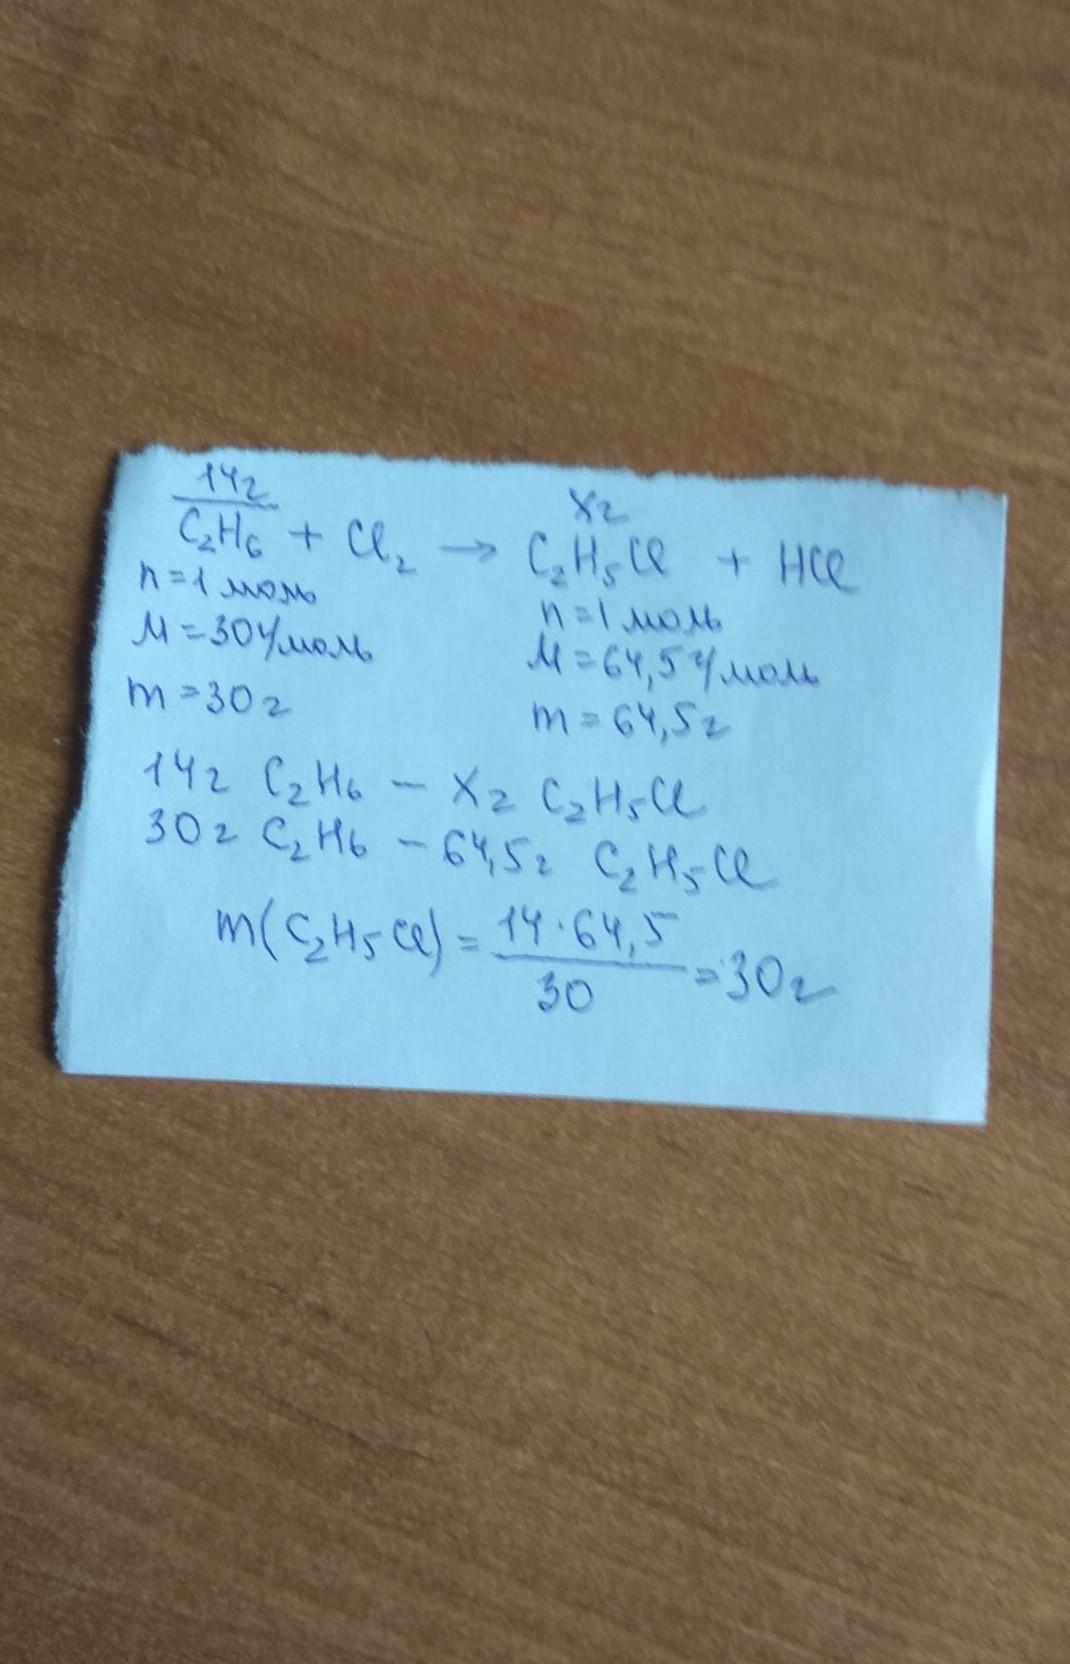 14г xг
C₂H₆ + Cl₂ → C₂H₅Cl + HCl
n=1 моль n=1 моль
M=30г/моль M=64,5г/моль
m=30г m=64,5г
14г C₂H₆ – xг C₂H₅Cl
30г C₂H₆ – 64,5г C₂H₅Cl
m(C₂H₅Cl) = 14·64,5 / 30 = 30г